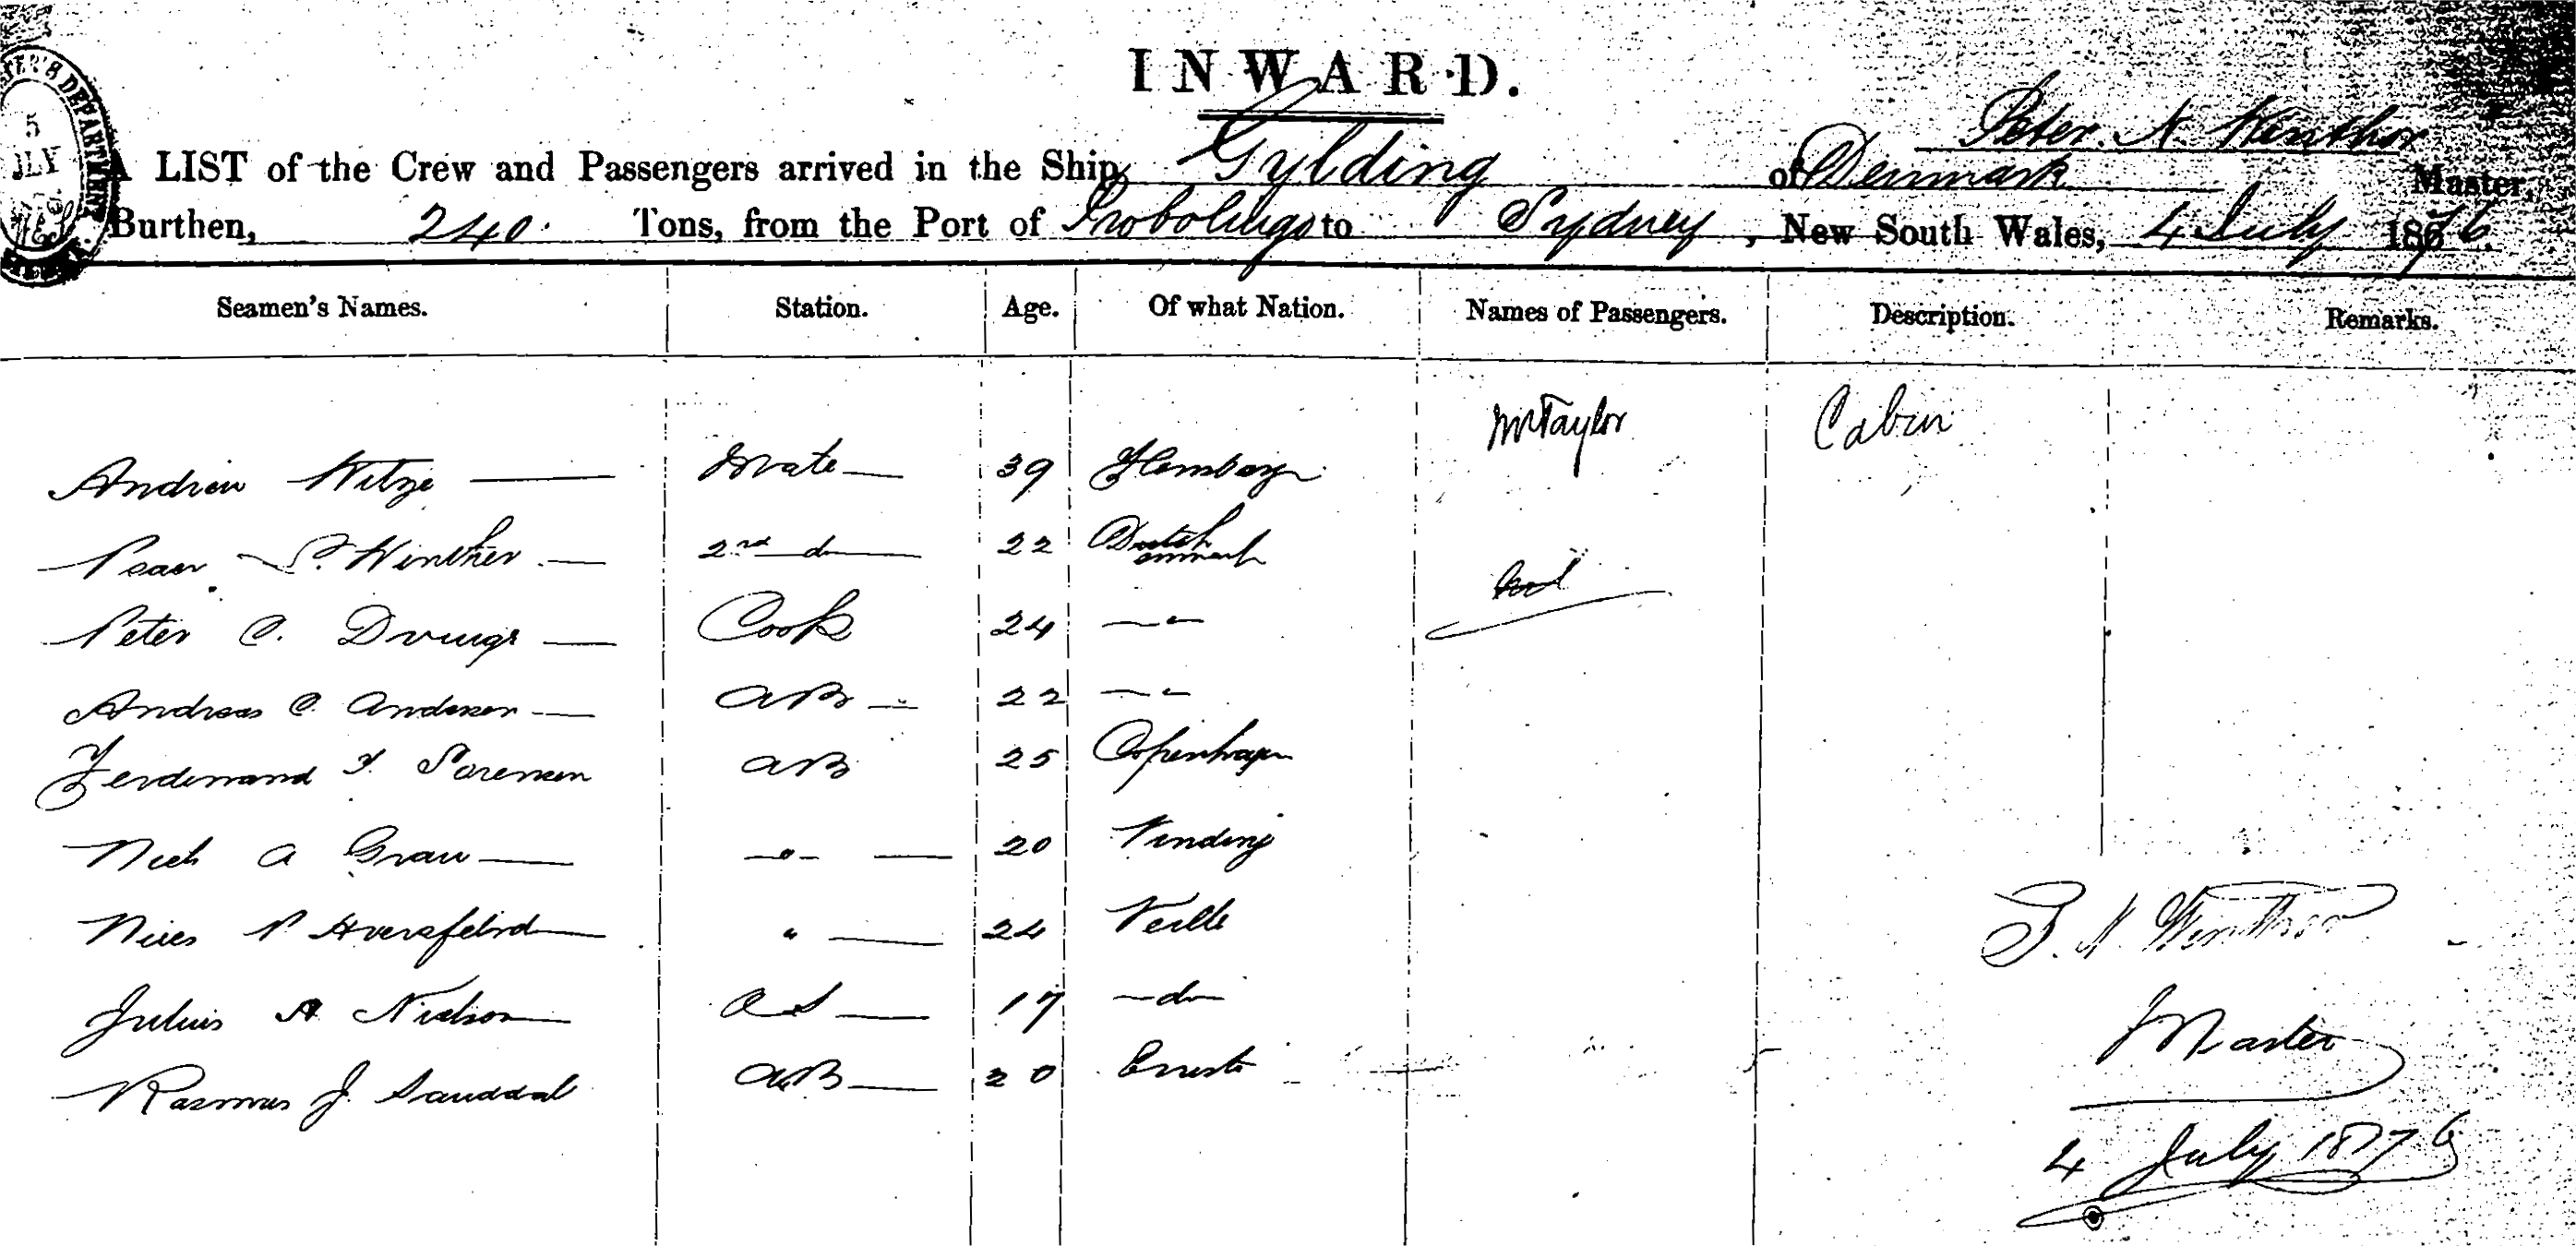 INWARD.
Peter. N. Winther
A LIST of the Crew and Passengers arrived in the Ship Gylding of Denmark Master,
Burthen, 240. Tons, from the Port of Probolingo to Sydney, New South Wales, 4 July 1876.
5
JLY
Seamen's Names. Station. Age. Of what Nation. Names of Passengers. Description. Remarks.
Mr Taylor Cabin
Andrew Mate 39
P. Winther 2nd do 22
Peter C. Cook 24 〃
Andreas C. Andersen AB 22 〃
Ferdinand F. Sorensen AB 25 Copenhagen
A Grau 〃 20 Vinding
P 〃 24 Veille
Julius A Nielson OS 17 do
Rasmus J. Sauddal AB 20
P. N. Winther
Master
4 July 1876